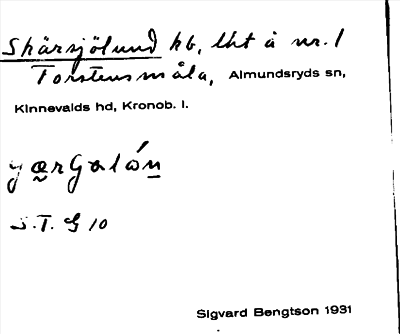 Skärsjölund hb, lht å nr. 1
Torstensmåla, Almundsryds sn,
Kinnevalds hd, Kronob. l.
S.T. G 10
Sigvard Bengtson 1931